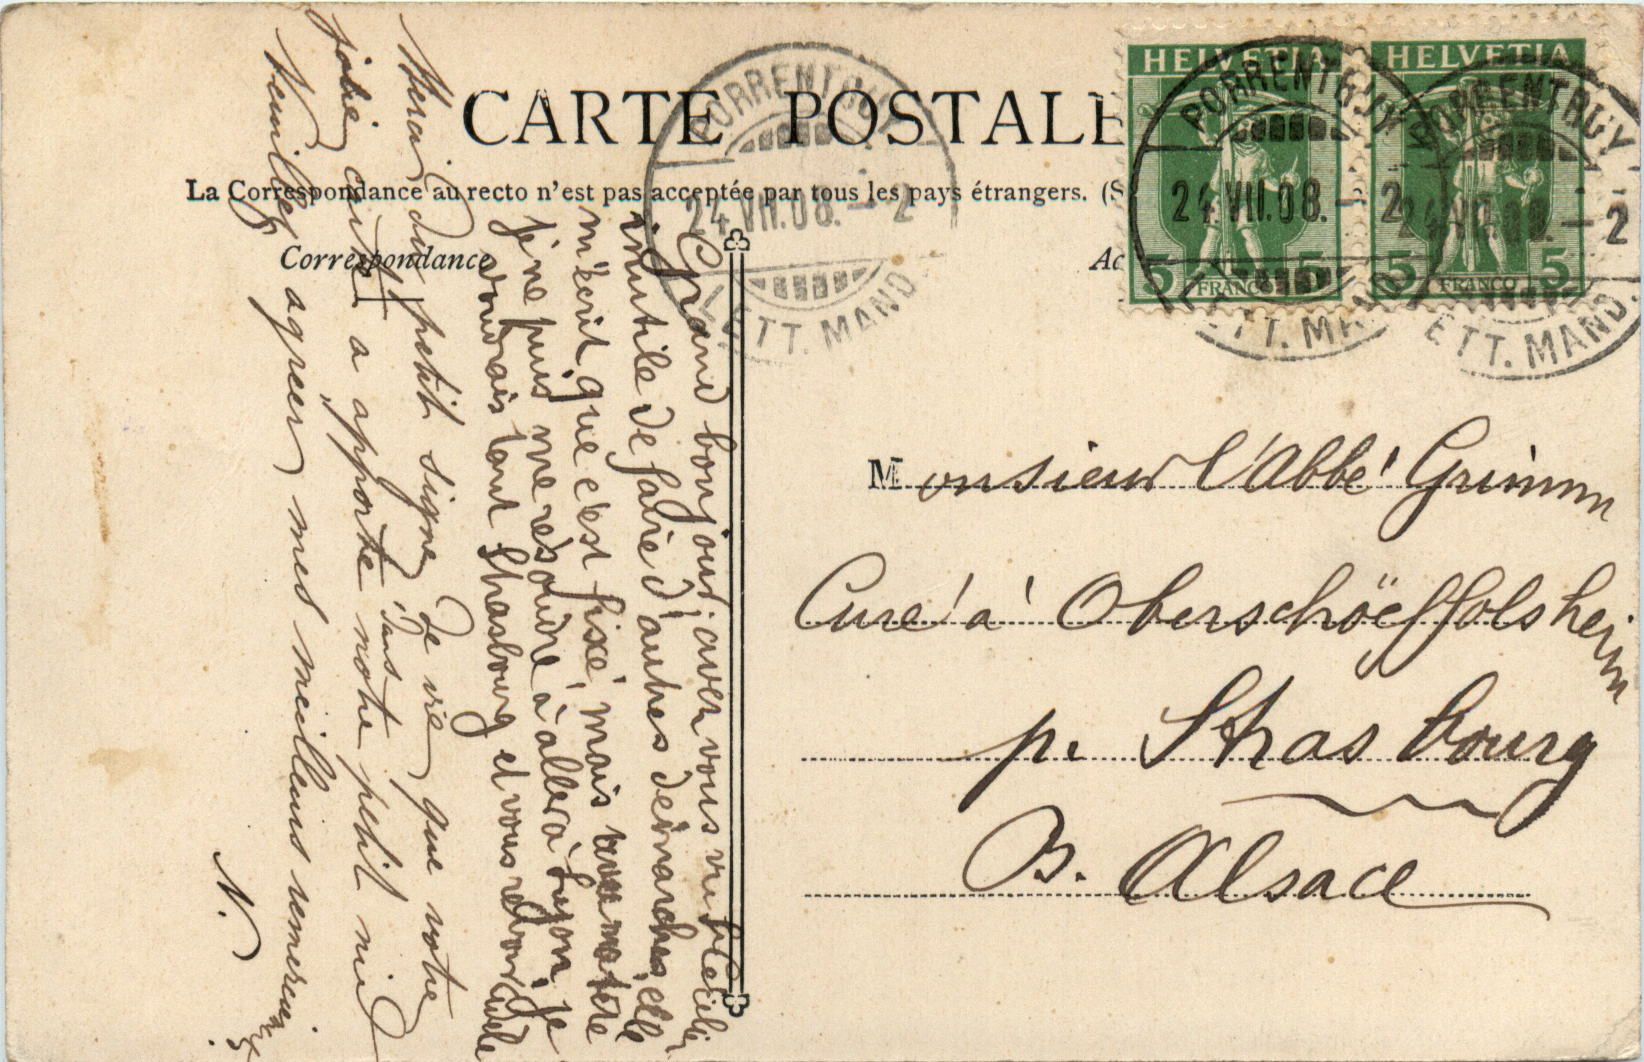 CARTE POSTALE
La Correspondance au recto n'est pas acceptée par tous les pays étrangers. (S
Correspondance
Ad
HELVETIA
5 FRANCO 5
HELVETIA
5 FRANCO 5
PORRENTRUY
24.VII.08.-2
LETT. MAND.
PORRENTRUY
24.VII.08.-2
LETT. MAND.
PORRENTRUY
24.VII.08.-2
LETT. MAND.
Monsieur l'Abbé Grimm
Curé à Oberschöeffolsheim
p. Strasbourg
B. Alsace
Grand bonjour, avez vous vu Cécile
inutile de faire d'autres démarches, elle
m'écrit que c'est fixé, mais notre
je ne puis me résoudre à aller à je
voudrais tant Strasbourg et vous
Merci du petit signe de vie que votre
jolie carte a apporté dans notre petit nid
Veuillez agréer mes meilleurs
N.